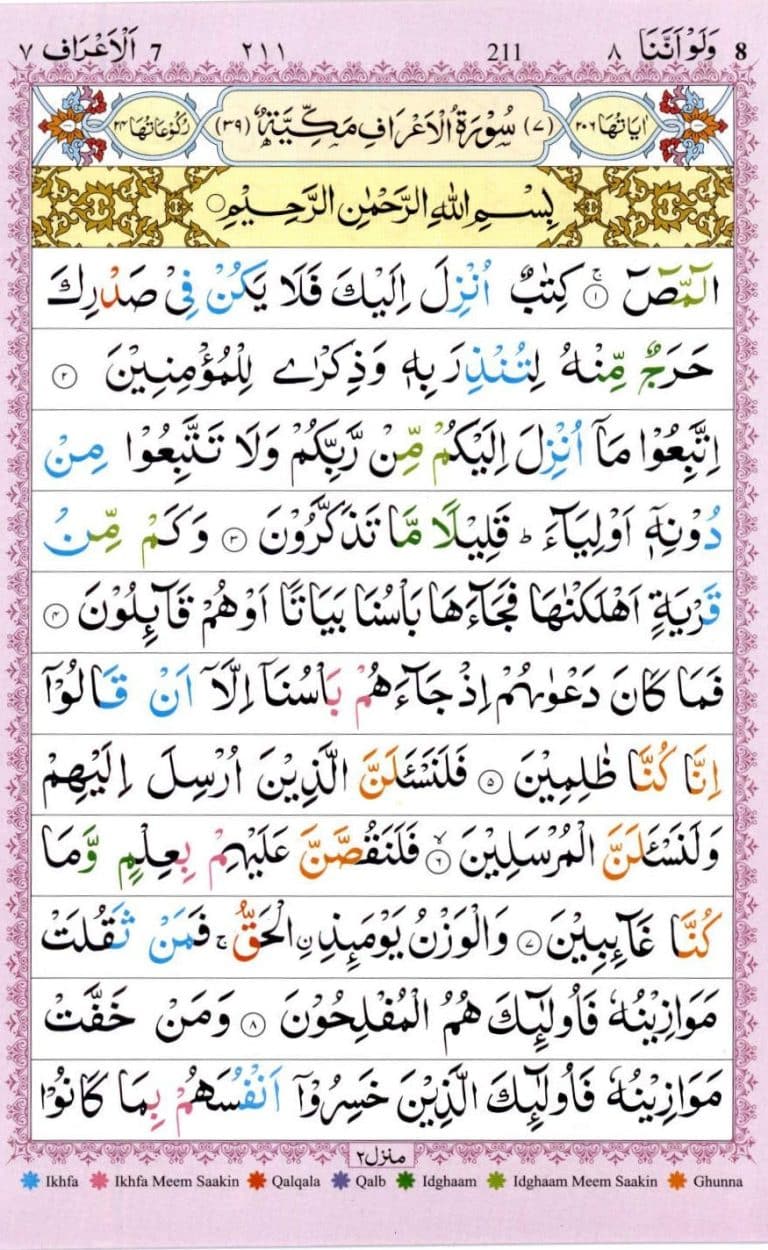 8 وَلَوْ اَنَّنَا ٨ 211 ٢١١ 7 اَلْاَعْرَاف ٧
اٰيَاتُهَا ٢٠٦ (٧) سُوْرَةُ الْاَعْرَافِ مَكِّيَّةٌ (٣٩) رُكُوْعَاتُهَا ٢٤
بِسْمِ اللّٰهِ الرَّحْمٰنِ الرَّحِيْمِ
الٓمّٓصٓ ۚ ١ كِتٰبٌ اُنْزِلَ اِلَيْكَ فَلَا يَكُنْ فِيْ صَدْرِكَ
حَرَجٌ مِّنْهُ لِتُنْذِرَ بِهٖ وَذِكْرٰى لِلْمُؤْمِنِيْنَ ٢
اِتَّبِعُوْا مَآ اُنْزِلَ اِلَيْكُمْ مِّنْ رَّبِّكُمْ وَلَا تَتَّبِعُوْا مِنْ
دُوْنِهٖٓ اَوْلِيَآءَ ؕ قَلِيْلًا مَّا تَذَكَّرُوْنَ ٣ وَكَمْ مِّنْ
قَرْيَةٍ اَهْلَكْنٰهَا فَجَآءَهَا بَاْسُنَا بَيَاتًا اَوْ هُمْ قَآىِٕلُوْنَ ٤
فَمَا كَانَ دَعْوٰىهُمْ اِذْ جَآءَهُمْ بَاْسُنَآ اِلَّآ اَنْ قَالُوْٓا
اِنَّا كُنَّا ظٰلِمِيْنَ ٥ فَلَنَسْـَٔلَنَّ الَّذِيْنَ اُرْسِلَ اِلَيْهِمْ
وَلَنَسْـَٔلَنَّ الْمُرْسَلِيْنَ ۙ ٦ فَلَنَقُصَّنَّ عَلَيْهِمْ بِعِلْمٍ وَّمَا
كُنَّا غَآىِٕبِيْنَ ٧ وَالْوَزْنُ يَوْمَىِٕذِ ِ۟الْحَقُّ ۚ فَمَنْ ثَقُلَتْ
مَوَازِيْنُهٗ فَاُولٰٓىِٕكَ هُمُ الْمُفْلِحُوْنَ ٨ وَمَنْ خَفَّتْ
مَوَازِيْنُهٗ فَاُولٰٓىِٕكَ الَّذِيْنَ خَسِرُوْٓا اَنْفُسَهُمْ بِمَا كَانُوْا
منزل ٢
Ikhfa Ikhfa Meem Saakin Qalqala Qalb Idghaam Idghaam Meem Saakin Ghunna